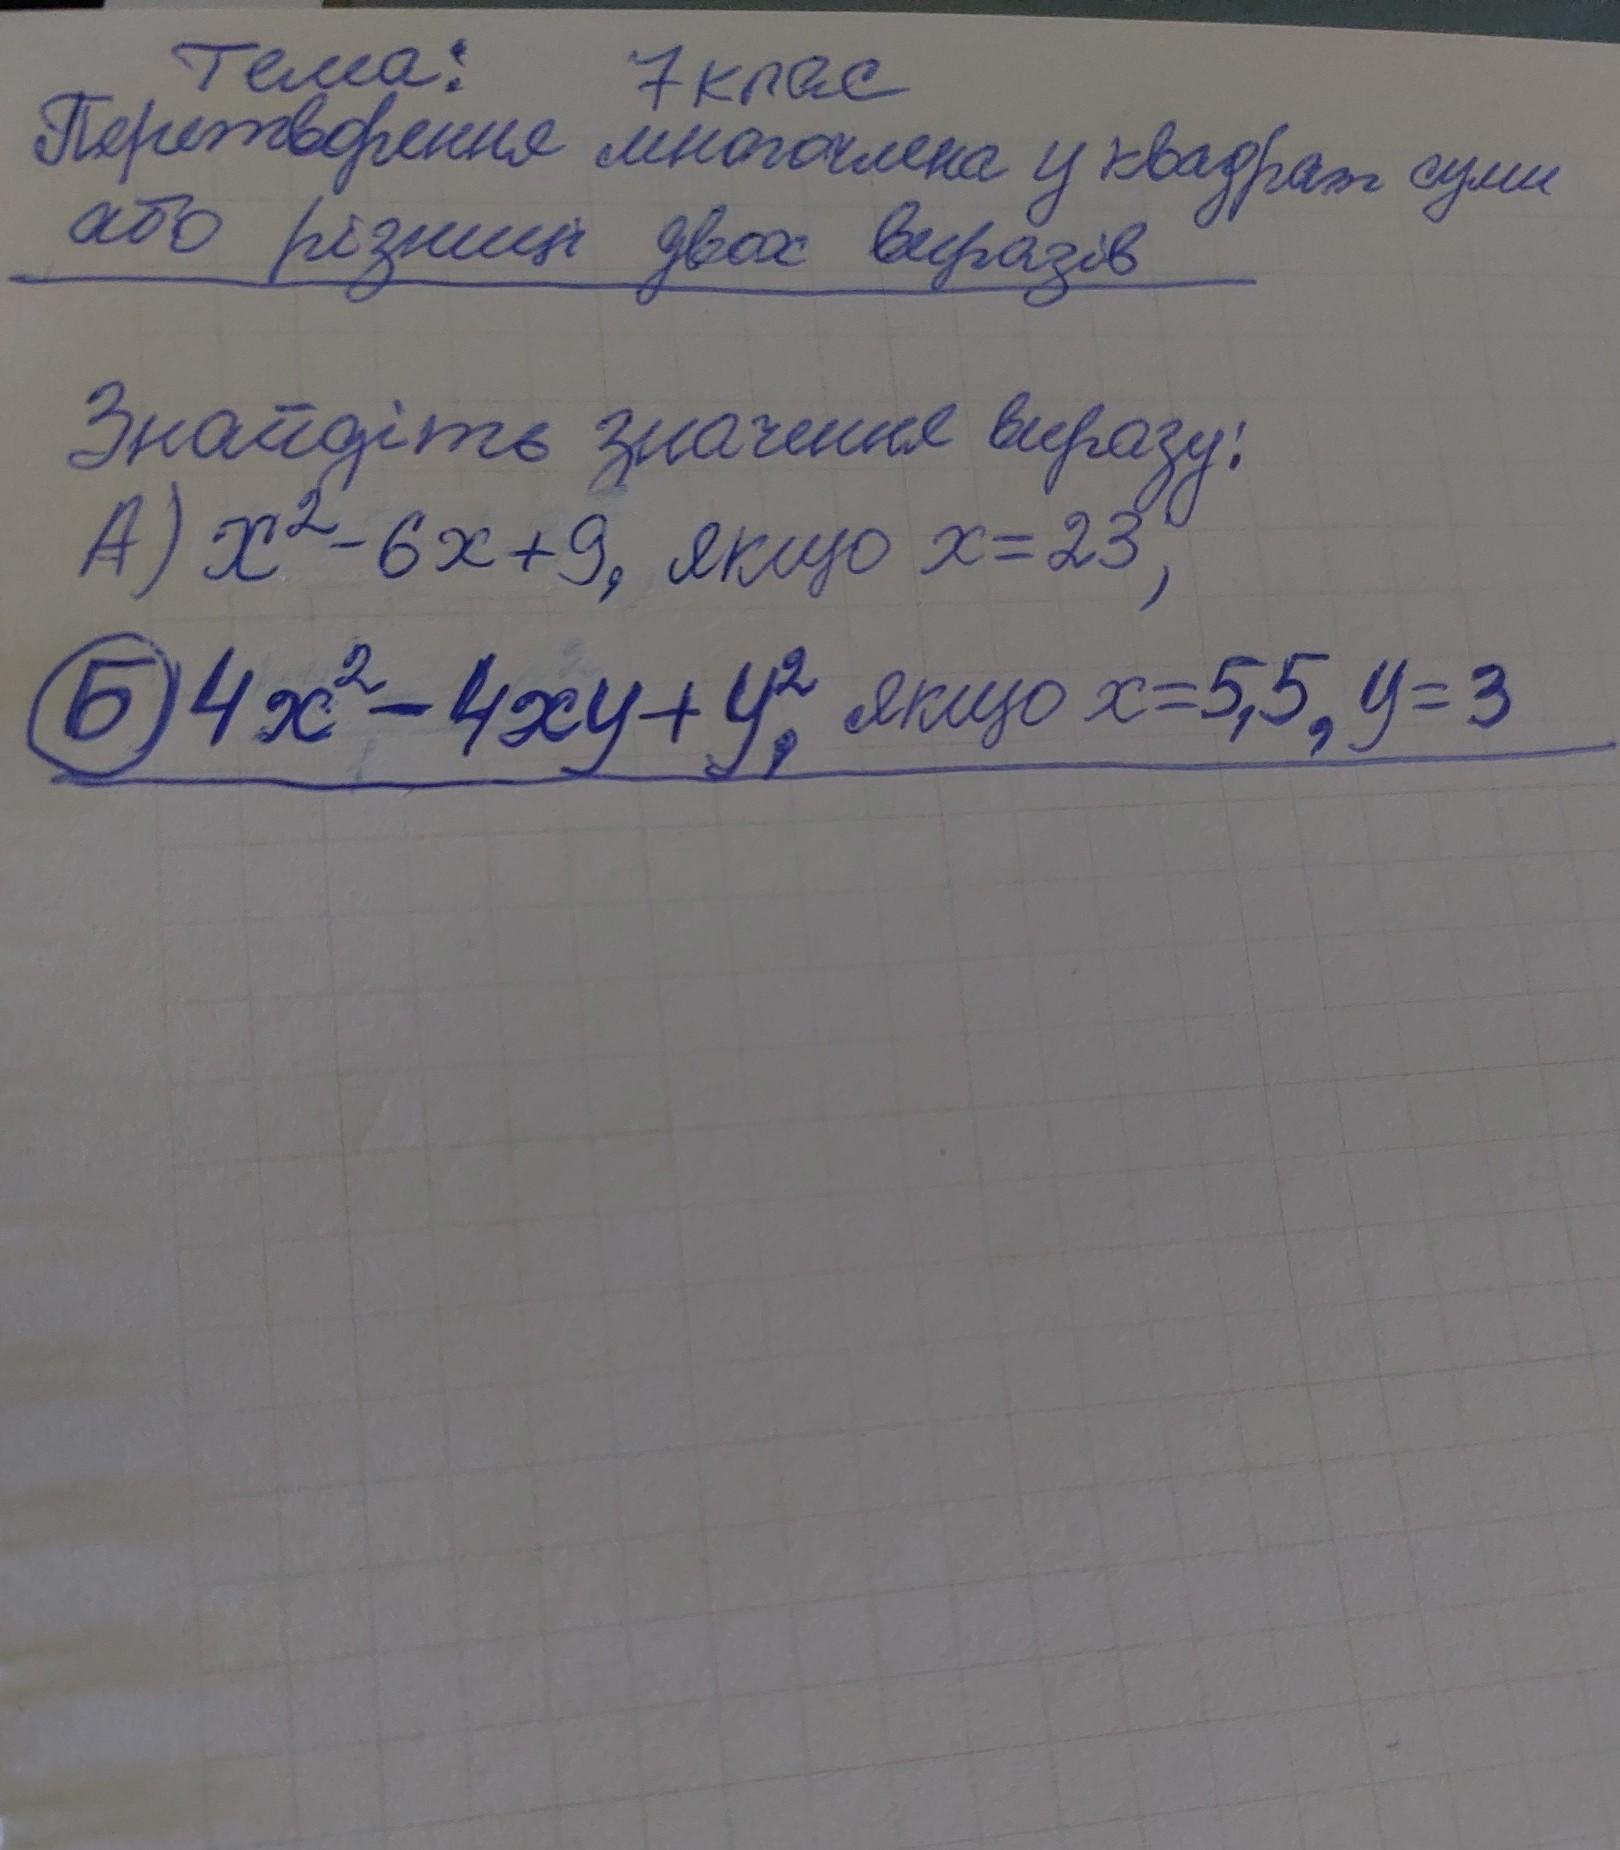 Тема: 7 клас
Перетворення многочлена у квадрат суми
або різниці двох виразів
Знайдіть значення виразу:
А) x²-6x+9, якщо x=23;
Б) 4x²-4xy+y², якщо x=5,5, y=3